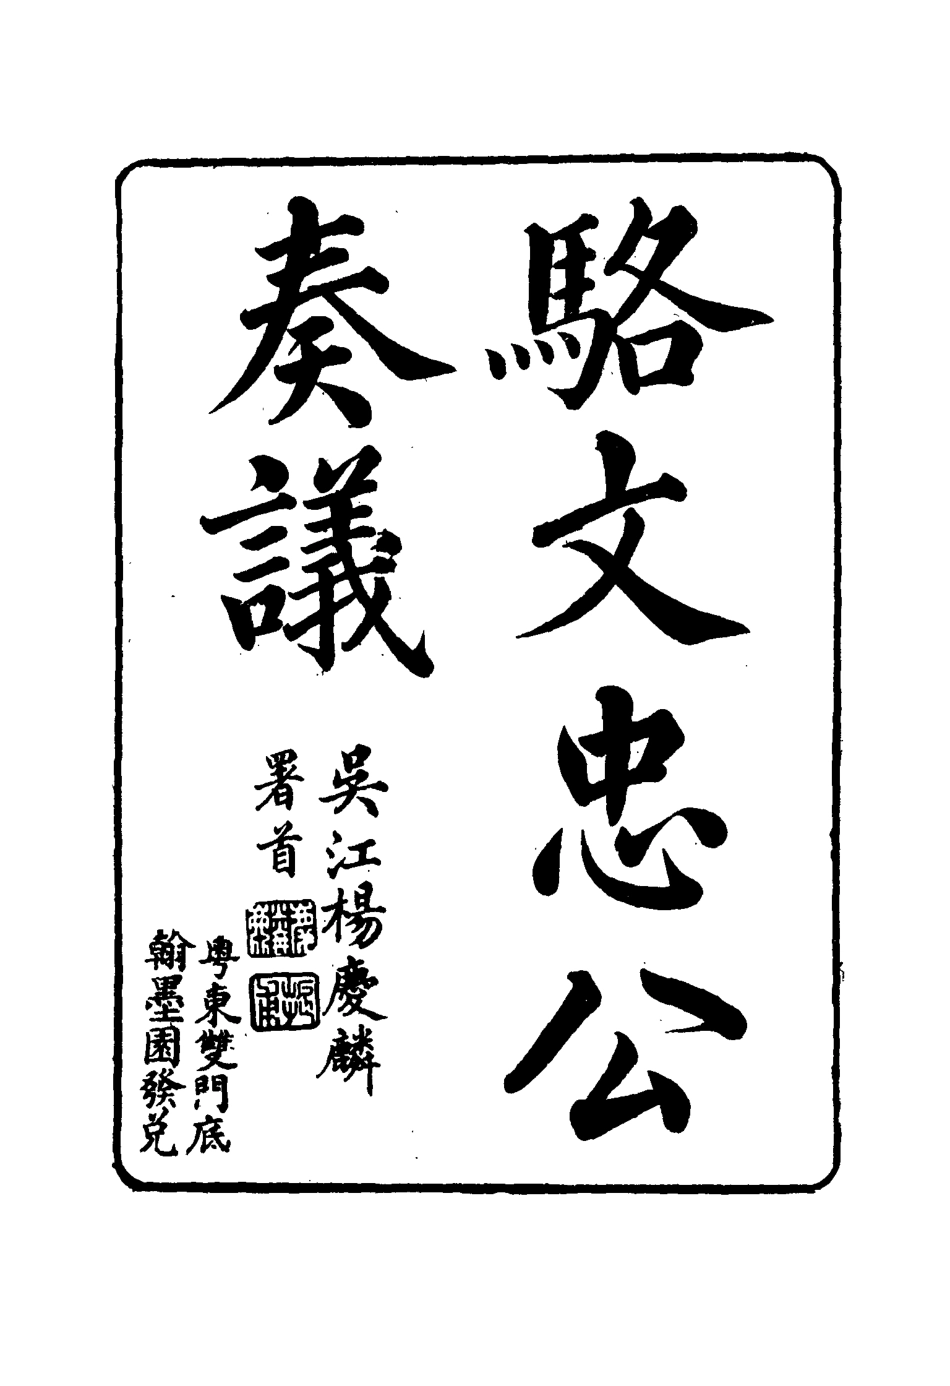 駱文忠公
奏議
吳江楊慶麟
署首
粵東雙門底
翰墨園發兌